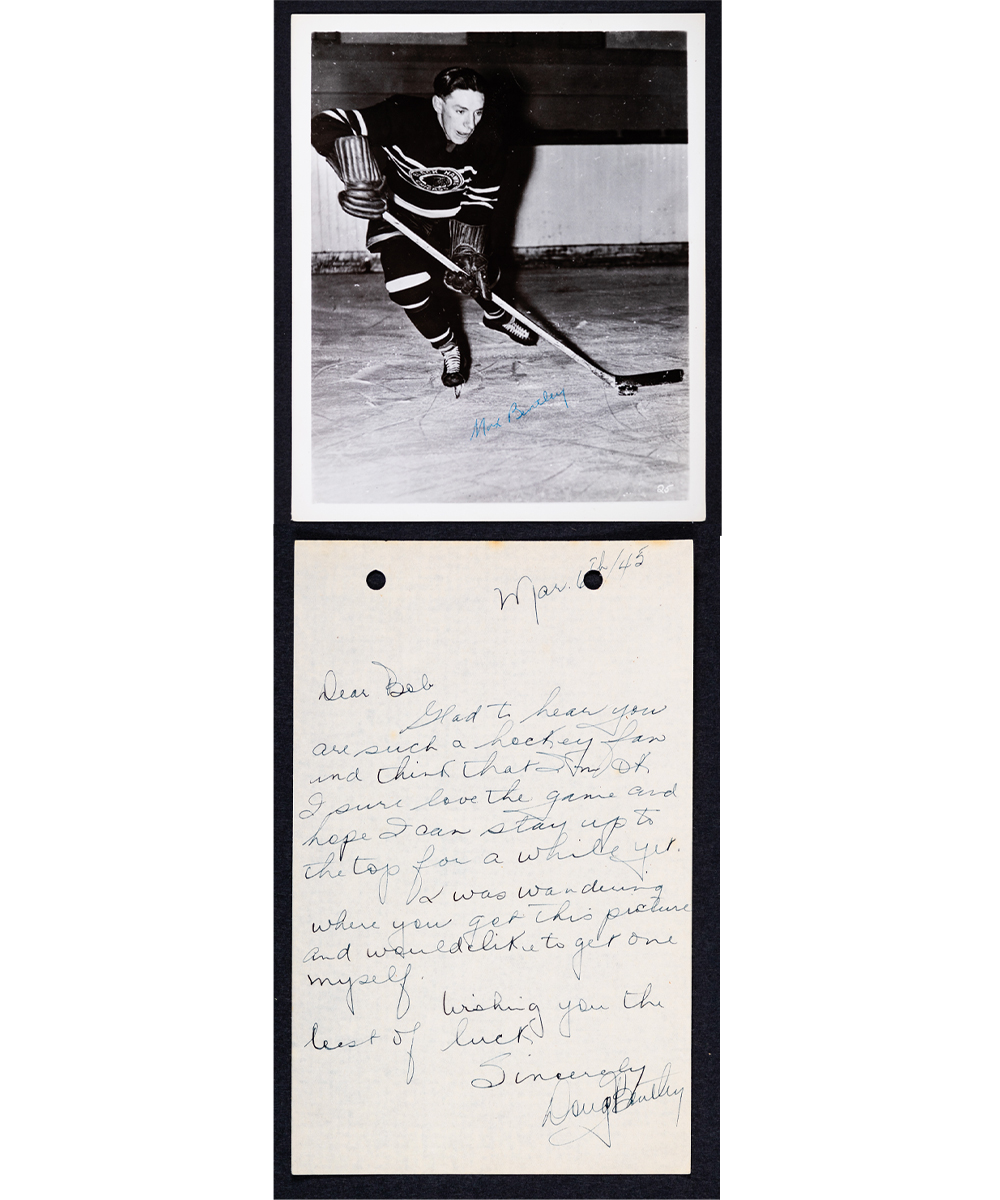 BLACK HAWKS
CHICAGO
Max Bentley
Mar. 6th/45
Dear Bob
Glad to hear you
are such a hockey fan
and think that I'm OK
I sure love the game and
hope I can stay up to
the top for a while yet.
I was wandering
where you got this picture
and would like to get one
myself.
Wishing you the
best of luck
Sincerely
Doug Bentley